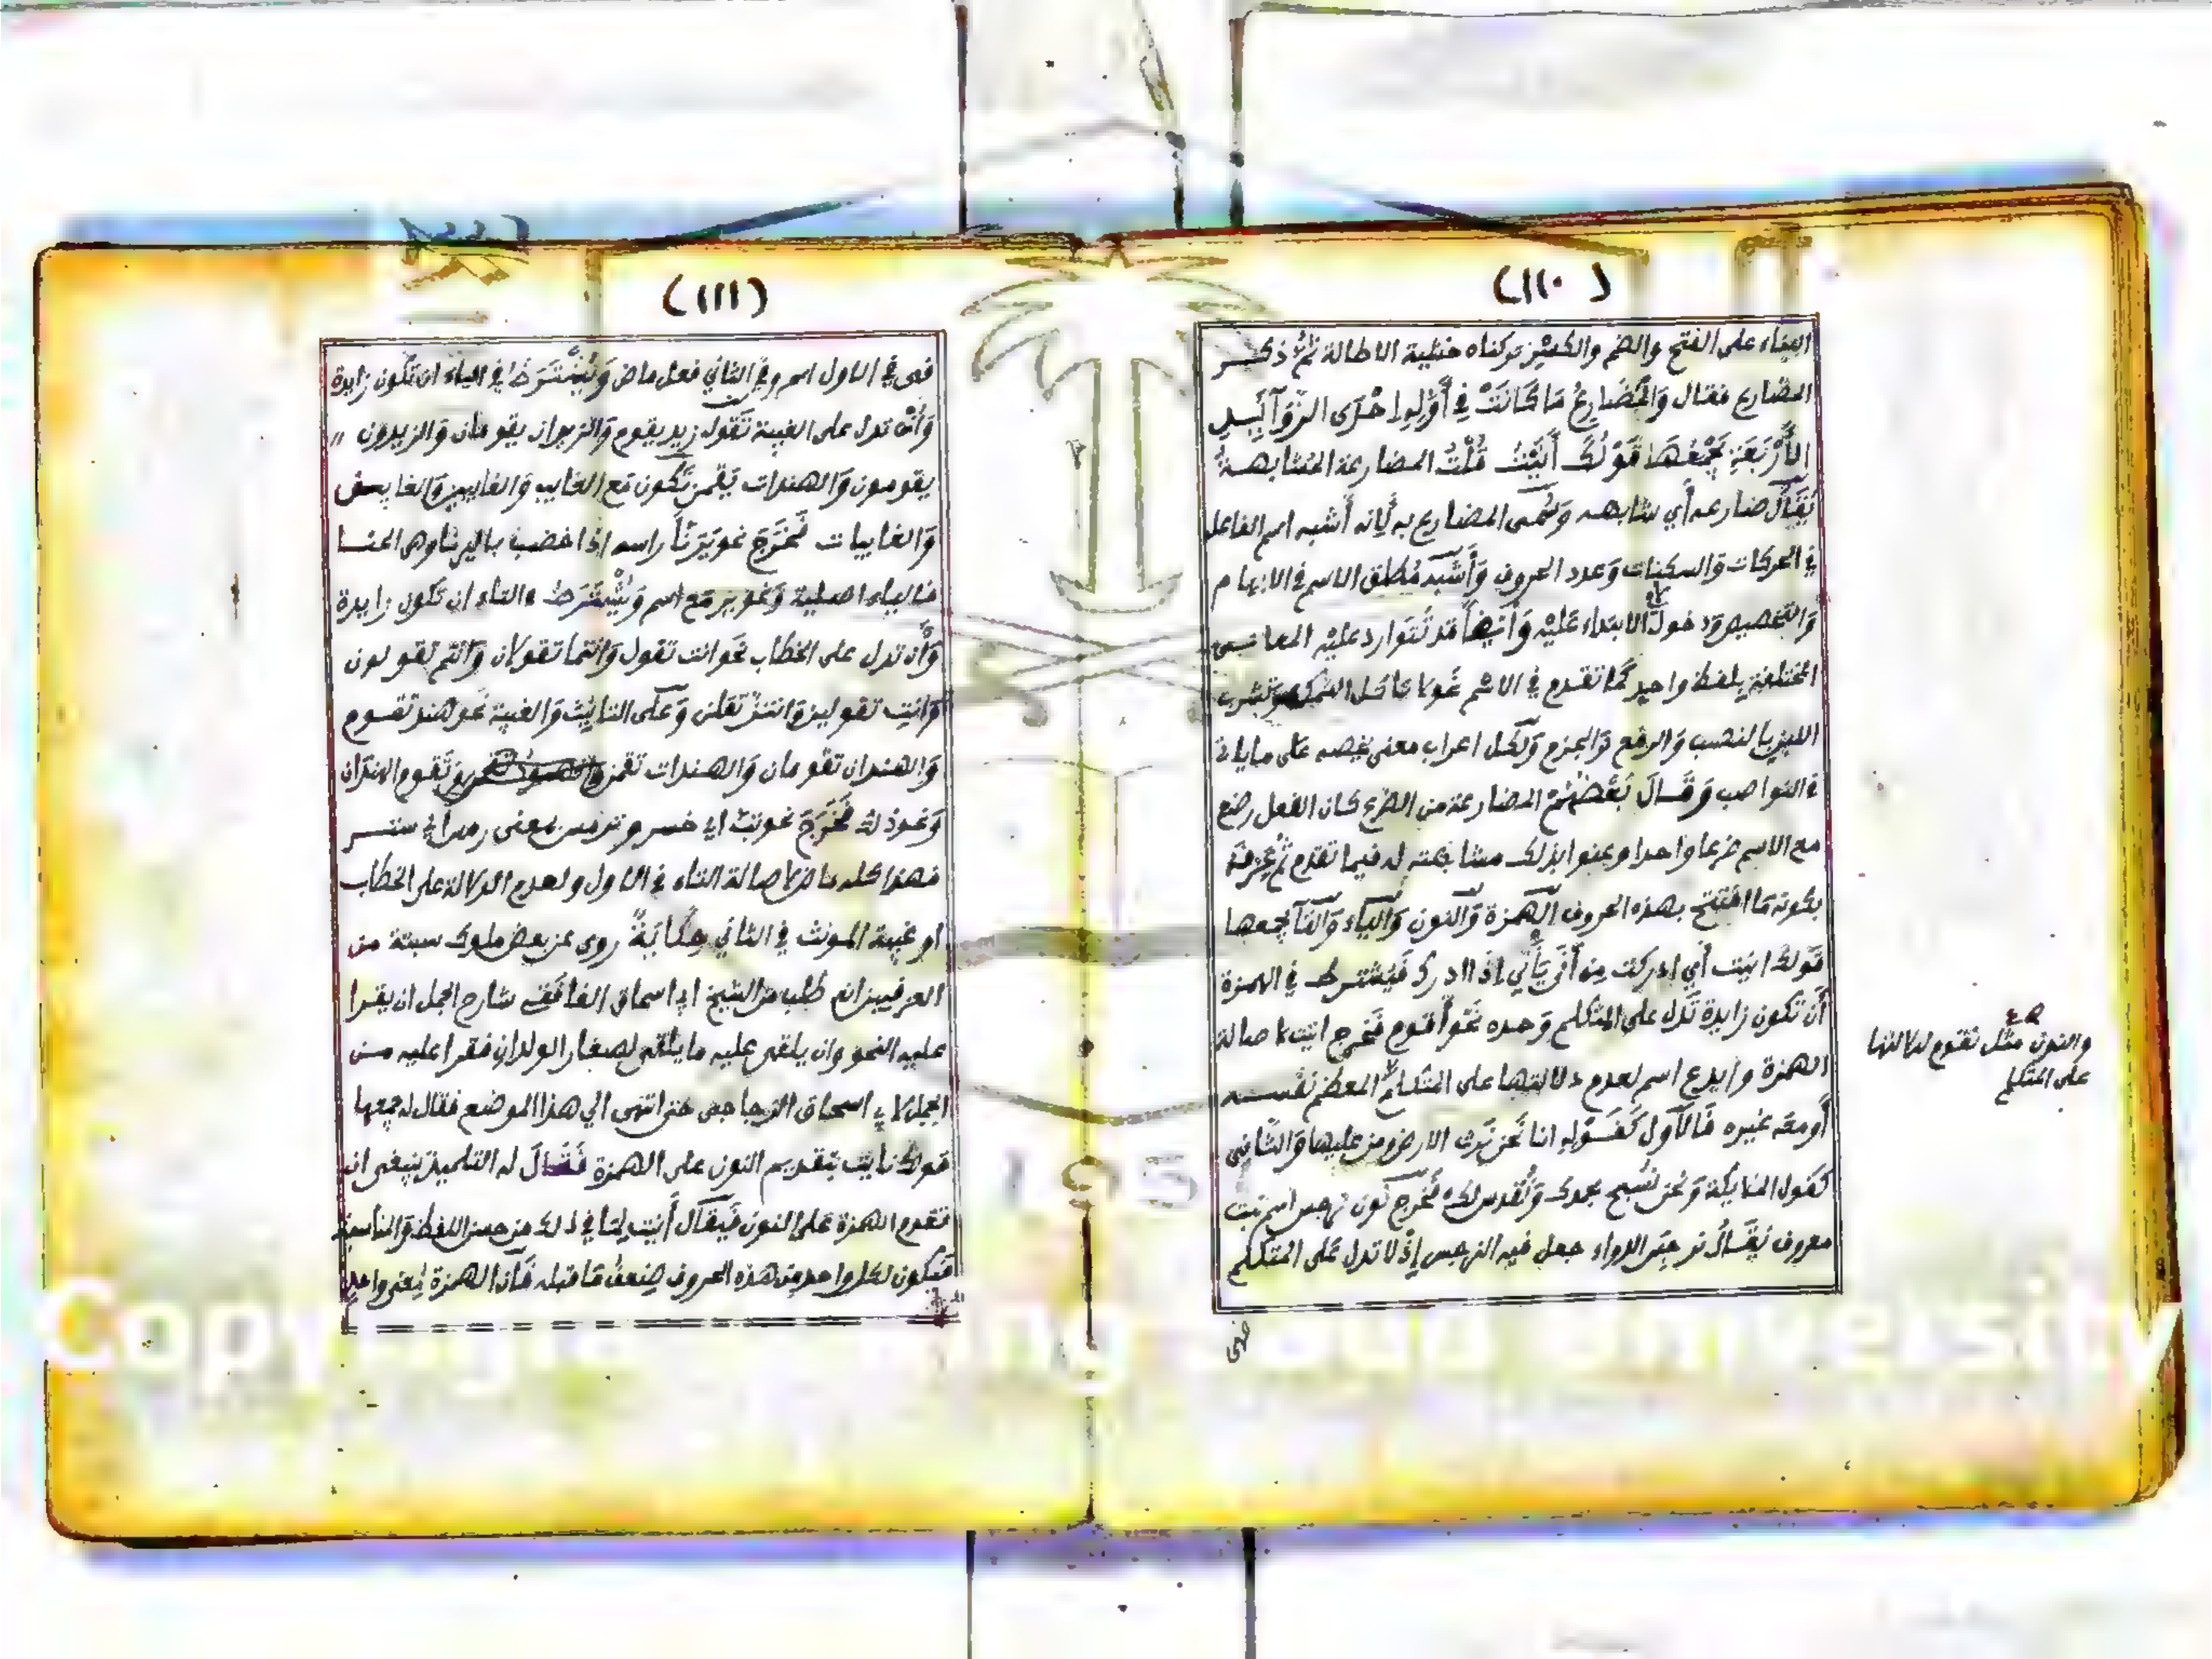 (١١٠)
البناء على الفتح والضم والكسر تركناه خشية الاطالة ثم ذكر
المضارع فقال وَالمُضَارِعُ مَا كَانَتْ فِي أَوَّلِهِ احْدَى الزَّوَآئِدِ
الأَرْبَعَةِ يَجْمَعُهَا قَوْلُكَ أَنَيْتُ قُلْتُ المضارعة المشابهة
يُقَالُ ضارعه أي شابهه وَسُمى المضارع به لِانه أشبه اسم الفاعل
في الحركات وَالسكنات وَعدد الحروف وَأَشبه مُطلق الاسم في الابهام
وَالتخصيص وَدخول لام الابتداء عَلَيْه وَأيضاً قد تَتَوارد عليْه المعانى
المختلفة بلفظ واحدٍ كَما تقدم في الاسْم نحو لا تاكل السمك وتشرب
اللبن بالنصب وَالرفع وَالجزم وَلكل اعراب معنى يخصه عَلى ما ياتى
في النواصب وَقَالَ بَعْضُهُمْ المضارعة من الضرع كان الفعل رضع
مع الاسم ضرعا واحدا وعنوا بذلك مشابهته له فيما تقدم ثُمَّ عرفه
بكونه مَا افتتح بهذه الحروف الهمزة وَالنون وَاليَاء وَالتَآ يجمعها
قَولك انيت أي ادركت مِن أَنَى يَأْنِي إذَا ادرك فَيشترط في الهمزة
أَن تكون زايدة تَدل على المتكلم وَحده نَحْوُ أقوم فَخرج انيت لاصالة
الهمزة وايدع اسم لعدم دلالتها على المتكلم المعظم نَفْسه
أَو معَه غيره فَالاَول كَقَوْله انا نَحن نَرث الارض ومن عليها وَالثَّاني
كقول الملايكة وَنحن نسَبح بحمدك وَنُقدس لك فَخرج نون نرجس اسم نبت
معروف يُقَالُ نرجَس الدواء جعل فيه النرجس إِذْ لا تدل عَلى المتكلم
فهى
والنون مثل نقوم لدلالتها
على المتكلم
(١١١)
فهى في الاول اسم وفي الثاني فعل ماض وَيُشْتَرَط في الياء ان تَكون زايدة
وَأَنْ تدل على الغيبة تَقول زيد يقوم وَالزيدان يقومان وَالزيدون "
يقومون وَالهندات يَقمن تَكون مَع الغايب وَالغايبين وَالغايبين
وَالغايبات فَخَرَجَ نحو يَرْنَأَ راسه اذا خضب باليرنا وهى الحنا
فالياء اصلية وَنحو يرمَع اسم وَيُشْتَرَط في التاء ان تكون زايدة
وَأَن تدل على الخطاب نحَو انت تقول وَانتما تقولان وَانتم تقولون
وَانتِ تقولين وَانتنّ تقلن وَعلَى التانيث وَالغيبة نَحو هند تقوم
وَالهندان تقومان وَالهندات تقمن وتَقوم الهندان
وَنحو ذلك فَخَرَجَ نحو تبَّ اي خسر و ترمس بمعنى رمس اي ستر
فهذا كله ماض لاصالة التاء في الاول ولعدم الدلالة على الخطاب
او غيبة المونث في الثاني حِكَايَةٌ روى عن بعض ملوك سبتة من
العزفيين انه طلب من الشيخ ابي اسحاق الغافقى شارح الجمل ان يقرا
عليه النحو وان يلقى عليه ما يلقى لصغار الولدان فقرا عليه من
الجمل لابي اسحاق الزجاجى حتى انتهى الي هذا الموضع فقال له يجمعها
قولك نايت بتقديم النون على الهمزة فَقَالَ له التلميذ ينبغى ان
تقدم الهمزة عَلى النون فَيقَال أَنيت لِمَا في ذلك من حسن اللفظ وَالمناسبة
فَيكون لكل واحد مِن هذه الحروف ضِعفُ مَا قبله فَان الهمزة لمعنى واحدٍ